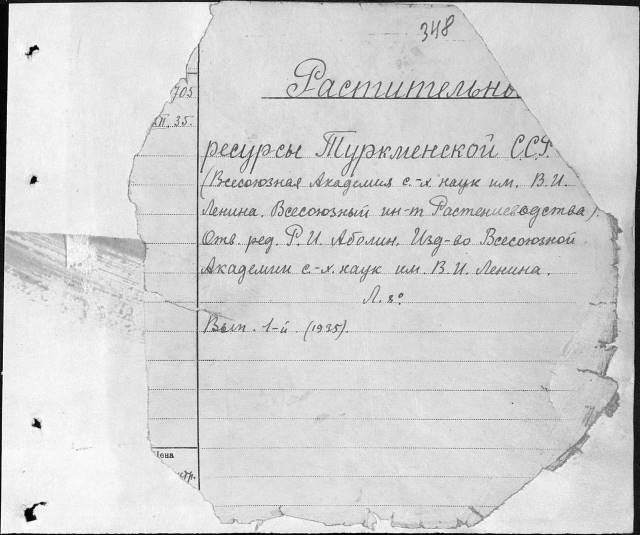 348
Растительн
705
XII.35.
ресурсы Туркменской С.С.Р.
(Всесоюзная Академия с.-х. наук им. В.И.
Ленина. Всесоюзный ин-т Растениеводства).
Отв. ред. Р.И. Аболин. Изд-во Всесоюзной
Академии с.-х. наук им. В.И. Ленина.
Л. 8°
Вып. 1-й. (1935).
Цена